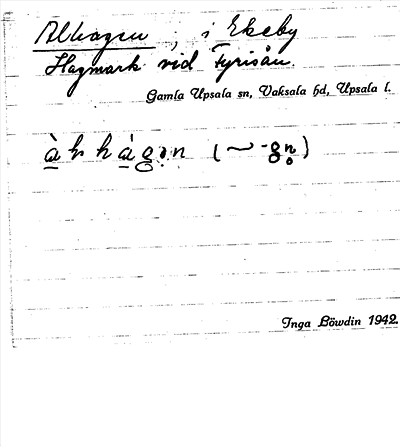 Alhagen, i Ekeby
Hagmark vid Fyrisån.
Gamla Upsala sn, Vaksala hd, Upsala l.
Inga Löwdin 1942.